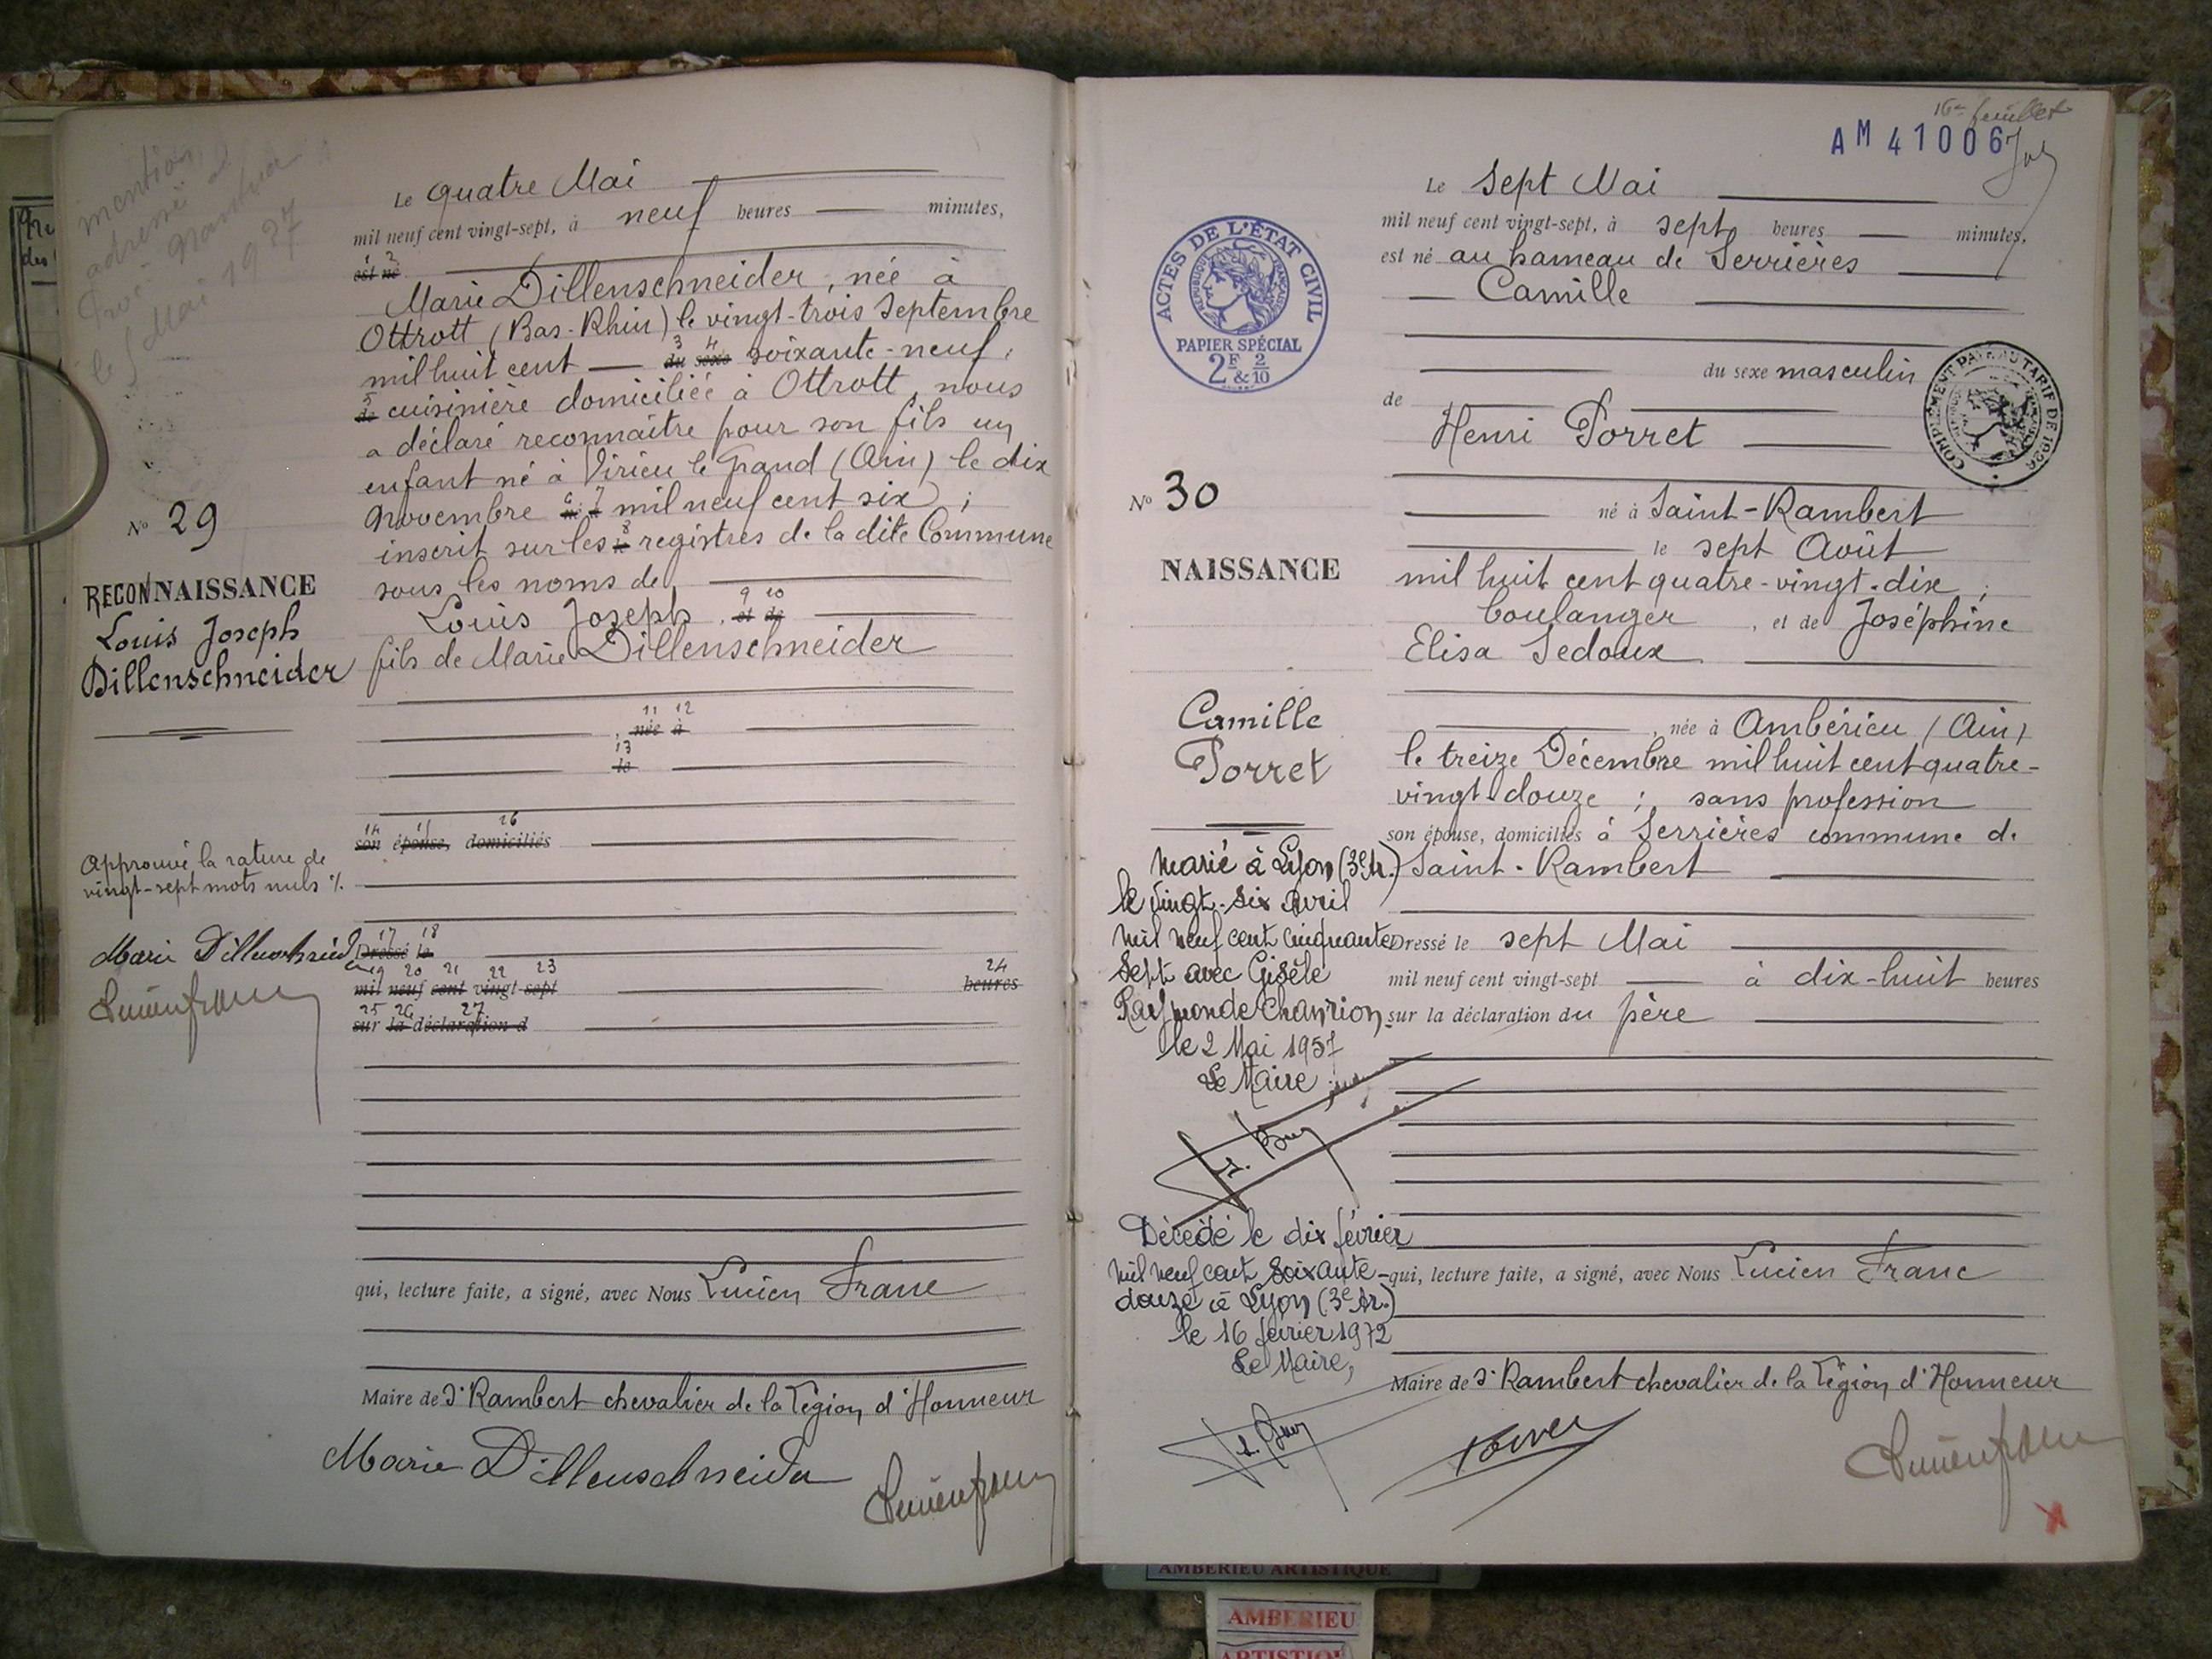 mention
adressé à
Mai 1927
Le quatre Mai
mil neuf cent vingt-sept, à neuf heures minutes,
1 2
est né
Marie Dillenschneider, née à
Ottrott (Bas-Rhin) le vingt-trois Septembre
3 4
mil huit cent du sexe soixante-neuf,
5
de cuisinière domiciliée à Ottrott, nous
a déclaré reconnaitre pour son fils un
enfant né à Virieu le Grand (Ain) le dix
6 7
Novembre né à mil neuf cent six ;
8
inscrit sur les le registres de la dite Commune
sous les noms de
9 10
Louis Joseph, et de
fils de Marie Dillenschneider
11 12
, née à
13
le
14 15 16
son épouse, domiciliés
17 18
Dressé le
19 20 21 22 23 24
mil neuf cent vingt-sept heures
25 26 27
sur la déclaration d
qui, lecture faite, a signé, avec Nous Lucien Franc
Maire de St Rambert chevalier de la Légion d'Honneur
Marie Dillenschneider
Lucien Franc
N° 29
RECONNAISSANCE
Louis Joseph
Dillenschneider
Approuvé la rature de
vingt-sept mots nuls %.
Marie Dillenschneider
Lucien Franc
16e feuillet
AM 41006
Le Sept Mai
mil neuf cent vingt-sept, à sept heures minutes,
est né au hameau de Serrières
Camille
du sexe masculin
de
Henri Porret
né à Saint-Rambert
le sept Août
mil huit cent quatre-vingt-dix ;
boulanger , et de Joséphine
Elisa Sedoux
, née à Ambérieu (Ain)
le treize Décembre mil huit cent quatre-
vingt-douze ; sans profession
son épouse, domiciliés à Serrières commune de
Saint-Rambert
Dressé le sept Mai
mil neuf cent vingt-sept à dix-huit heures
sur la déclaration du père
qui, lecture faite, a signé, avec Nous Lucien Franc
Maire de St Rambert chevalier de la Légion d'Honneur
Porret
Lucien Franc
ACTES DE L'ÉTAT CIVIL
RÉPUBLIQUE FRANÇAISE
PAPIER SPÉCIAL
2F & 2/10
COMPLÉMENT PAYÉ AU TARIF DE 1926
N° 30
NAISSANCE
Camille
Porret
Marié à Lyon (3e Ar.)
le vingt-six avril
mil neuf cent cinquante
sept avec Gisèle
Raymonde Chanrion
le 2 Mai 1957
Le Maire
Décédé le dix février
mil neuf cent soixante-
douze à Lyon (3e Ar.)
le 16 février 1972
Le Maire,
AMBERIEU ARTISTIQUE
AMBERIEU
ARTISTIQUE